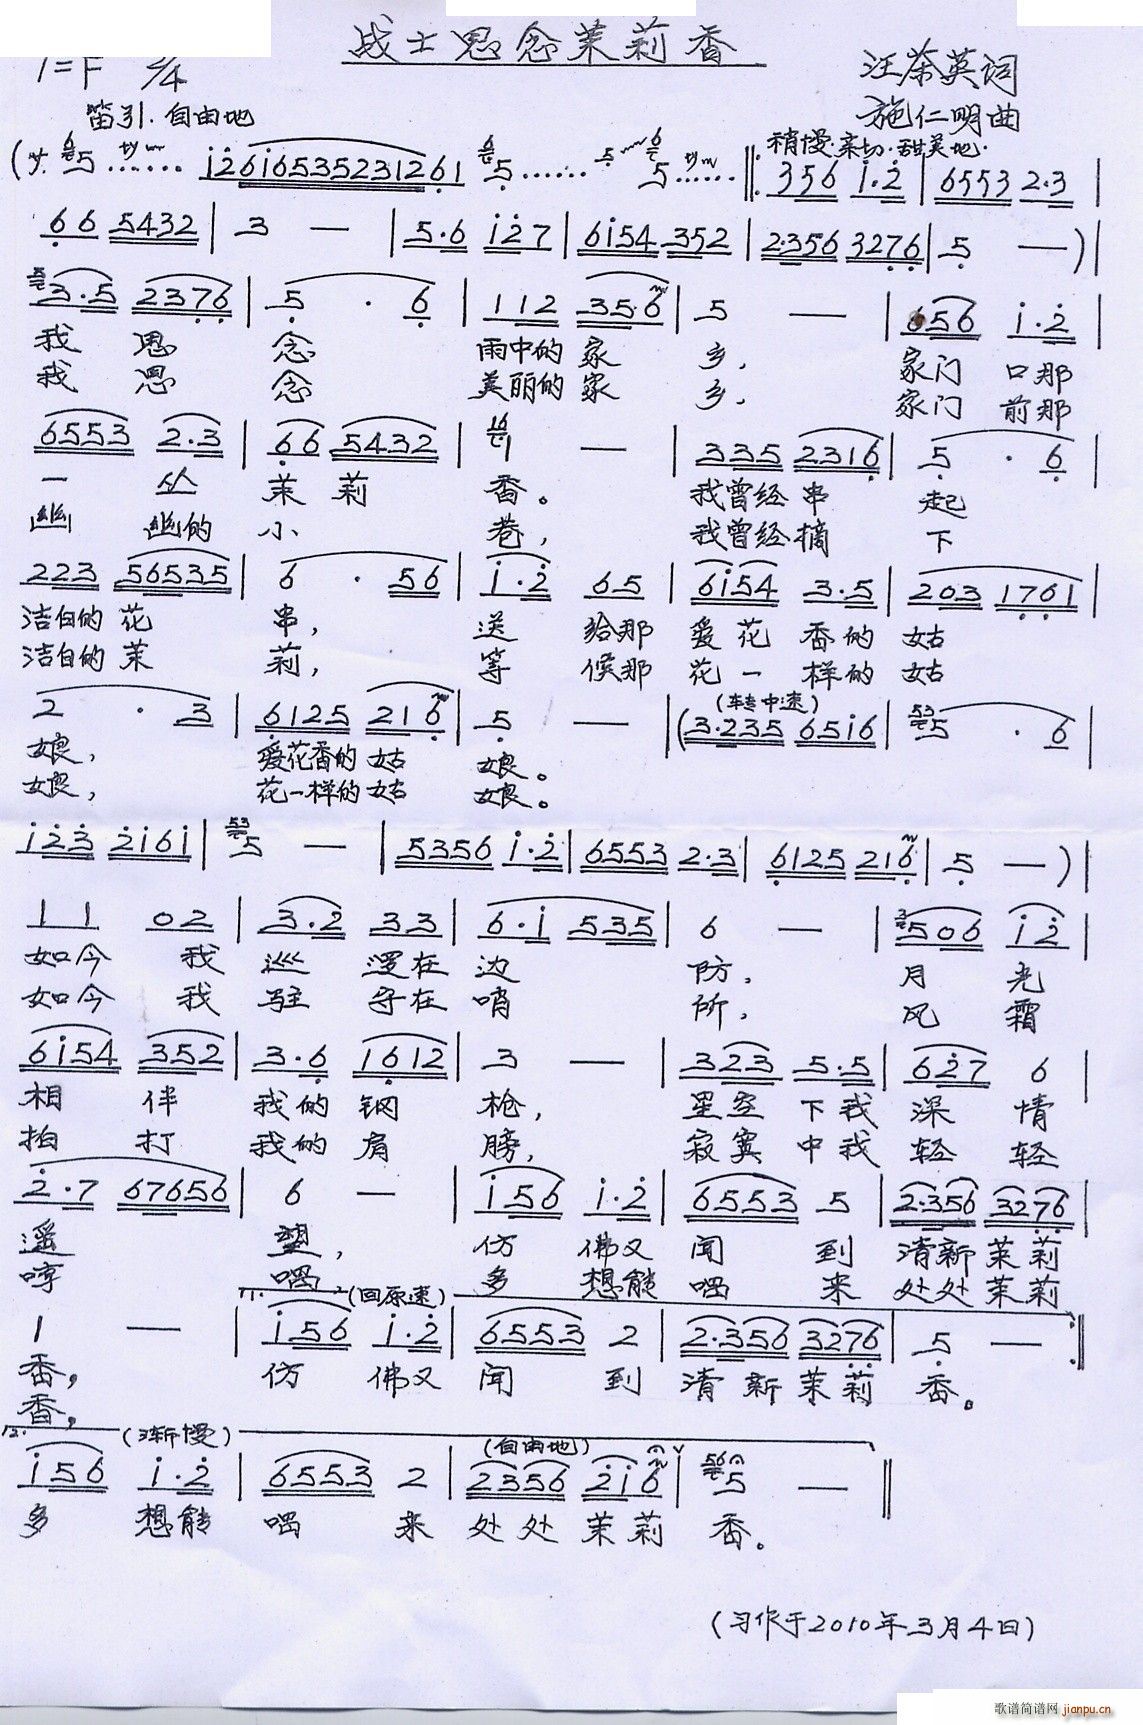 战士思念茉莉香
1=F 2/4
汪茶英词
笛引.自由地
施仁明曲
稍慢·亲切·甜美地·
(サ 5 ...... i26i6535231261 5 ...... 5 5 ...... ‖: 356 i·2 | 6553 2·3 |
66 5432 | 3 — | 5·6 i27 | 6i54 352 | 2·356 3276 | 5 — ) |
3·5 2376 | 5 · 6 | 112 35·6 | 5 — | 656 i·2 |
我 思 念 雨中的家 乡, 家门 口那
我 思 念 美丽的家 乡, 家门 前那
6553 2·3 | 66 5432 | 1 — | 335 2316 | 5 · 6 |
一 丛 茉 莉 香。 我曾经串 起
幽 幽的 小 巷, 我曾经摘 下
223 56535 | 6 · 56 | i·2 65 | 6i54 3·5 | 203 1761 |
洁白的 花 串, 送 给那 爱 花 香的 姑
洁白的 茉 莉, 等 候那 花 一 样的 姑
2 · 3 | 6125 216 | 5 — | (转中速) (3·235 65i6 | 5 · 6 |
娘, 爱花香的 姑 娘。
娘, 花一样的 姑 娘。
i23 2i6i | 5 — | 5356 i·2 | 6553 2·3 | 6125 216 | 5 — ) |
11 02 | 3·2 33 | 6·i 535 | 6 — | 506 i2 |
如今 我 巡 逻在 边 防, 月 光
如今 我 驻 守在 哨 所, 风 霜
6i54 352 | 3·6 1612 | 3 — | 323 5·5 | 627 6 |
相 伴 我的 钢 枪, 星空 下我 深 情
拍 打 我的 肩 膀, 寂寞 中我 轻 轻
2·7 67656 | 6 — | i56 i·2 | 6553 5 | 2·356 3276 |
遥 望, 仿 佛又 闻 到 清新 茉莉
哼 唱 多 想能 唱 来 处处 茉莉
1. (回原速)
1 — | i56 i·2 | 6553 2 | 2·356 3276 | 5 — :‖
香, 仿 佛又 闻 到 清 新 茉 莉 香。
香,
2. (渐慢) (自由地)
i56 i·2 | 6553 2 | 2356 2i6 | 5 — ‖
多 想能 唱 来 处 处 茉 莉 香。
(习作于2010年3月4日)
歌谱简谱网 jianpu.cn